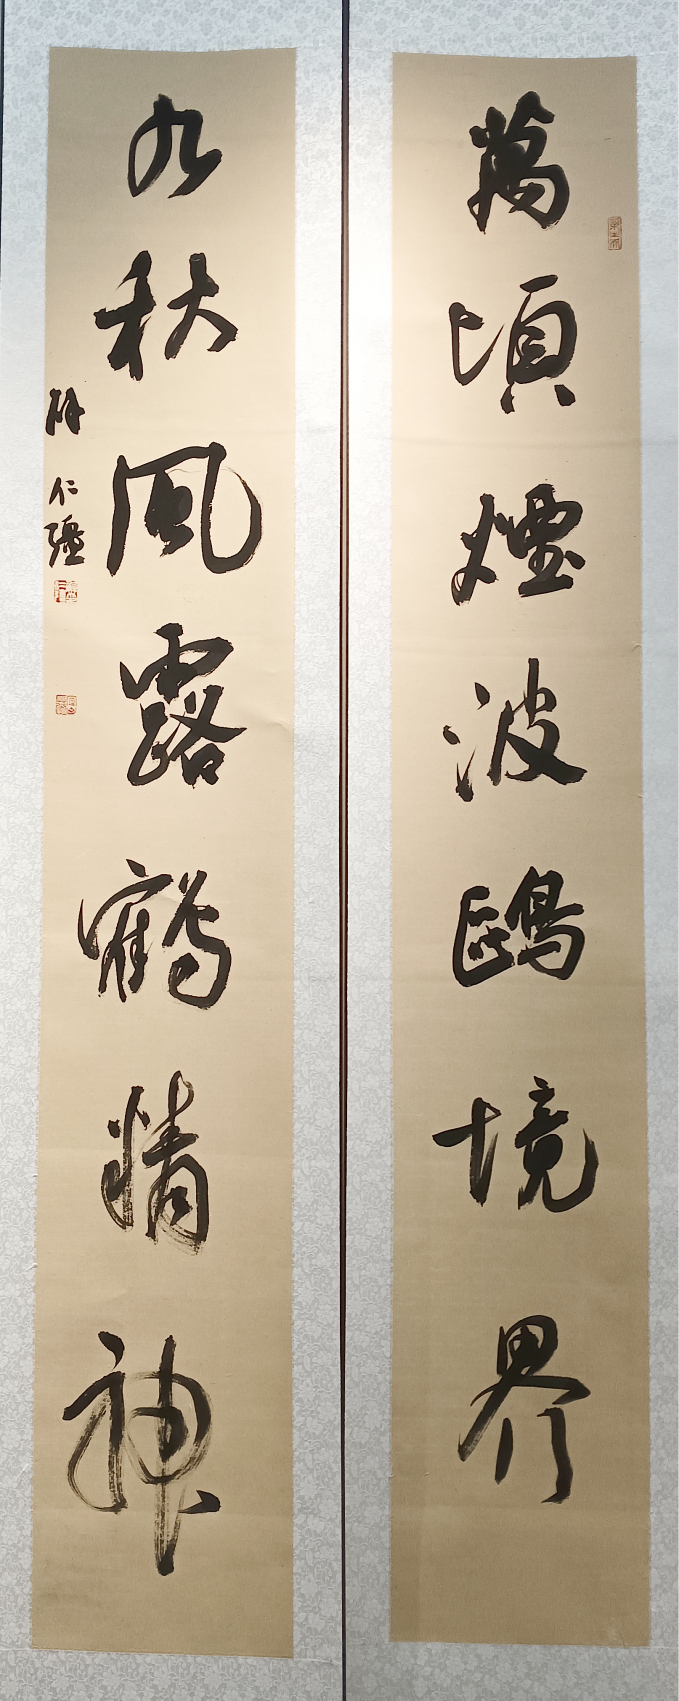 萬頃煙波鷗境界
九秋風露鶴精神
仁疆